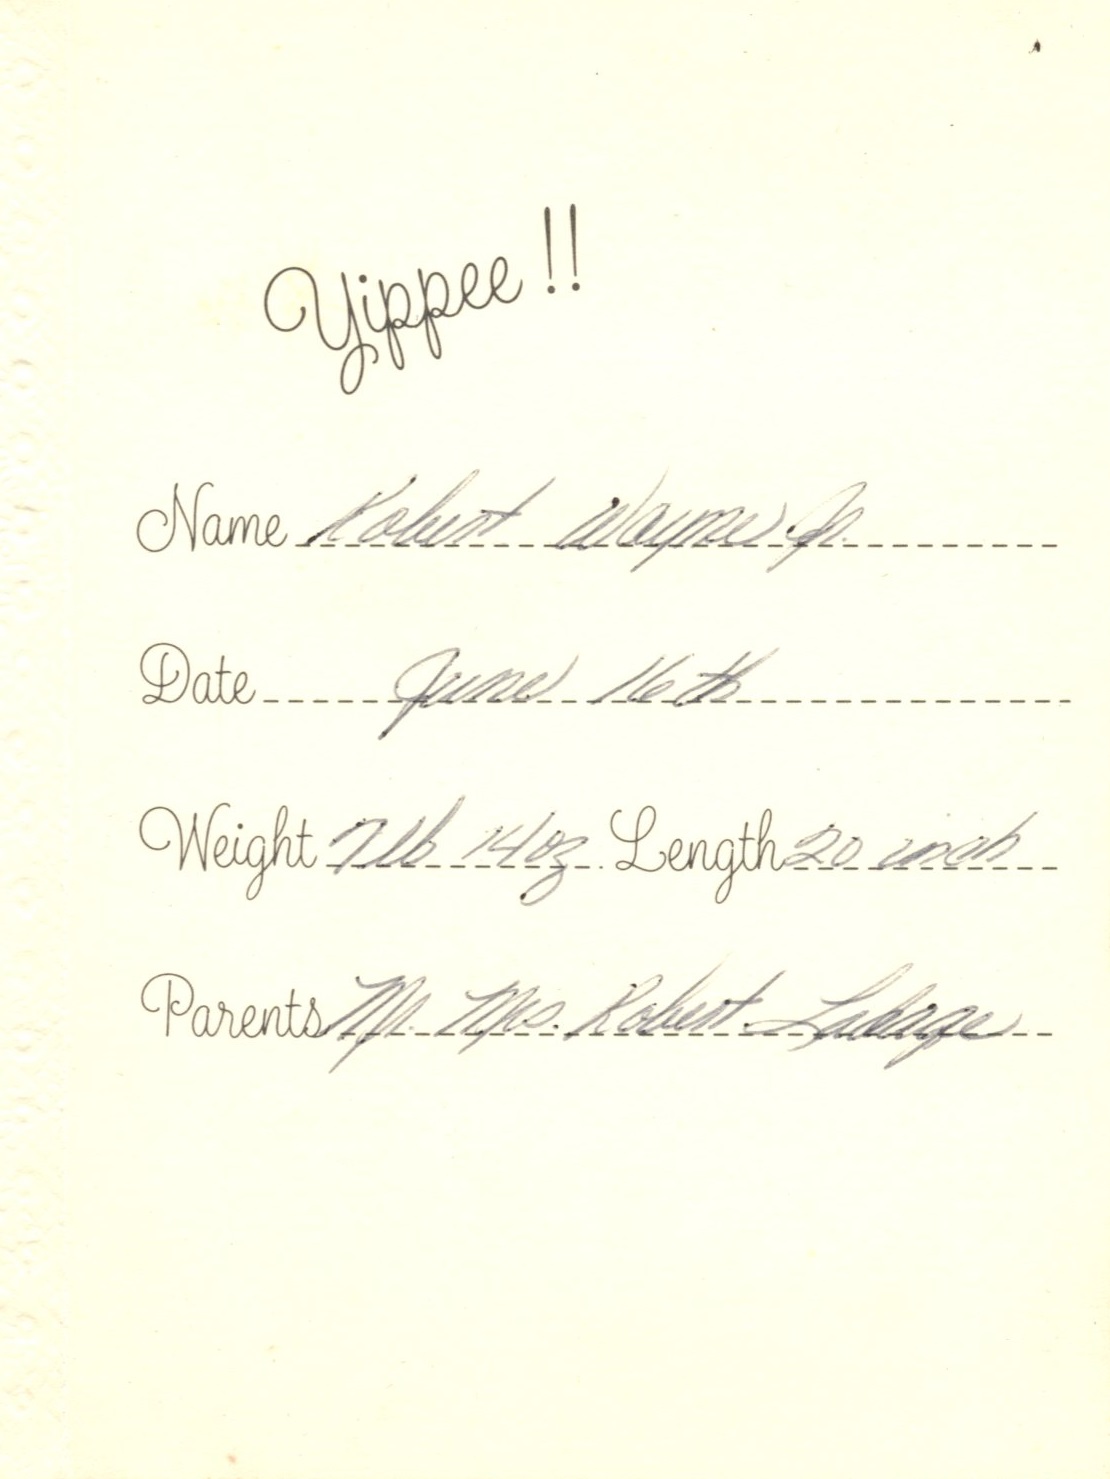 Yippee!!
Name Robert Wayne Jr.
Date June 16th
Weight 7lb 14oz. Length 20 inch
Parents Mr. Mrs. Robert Laberge